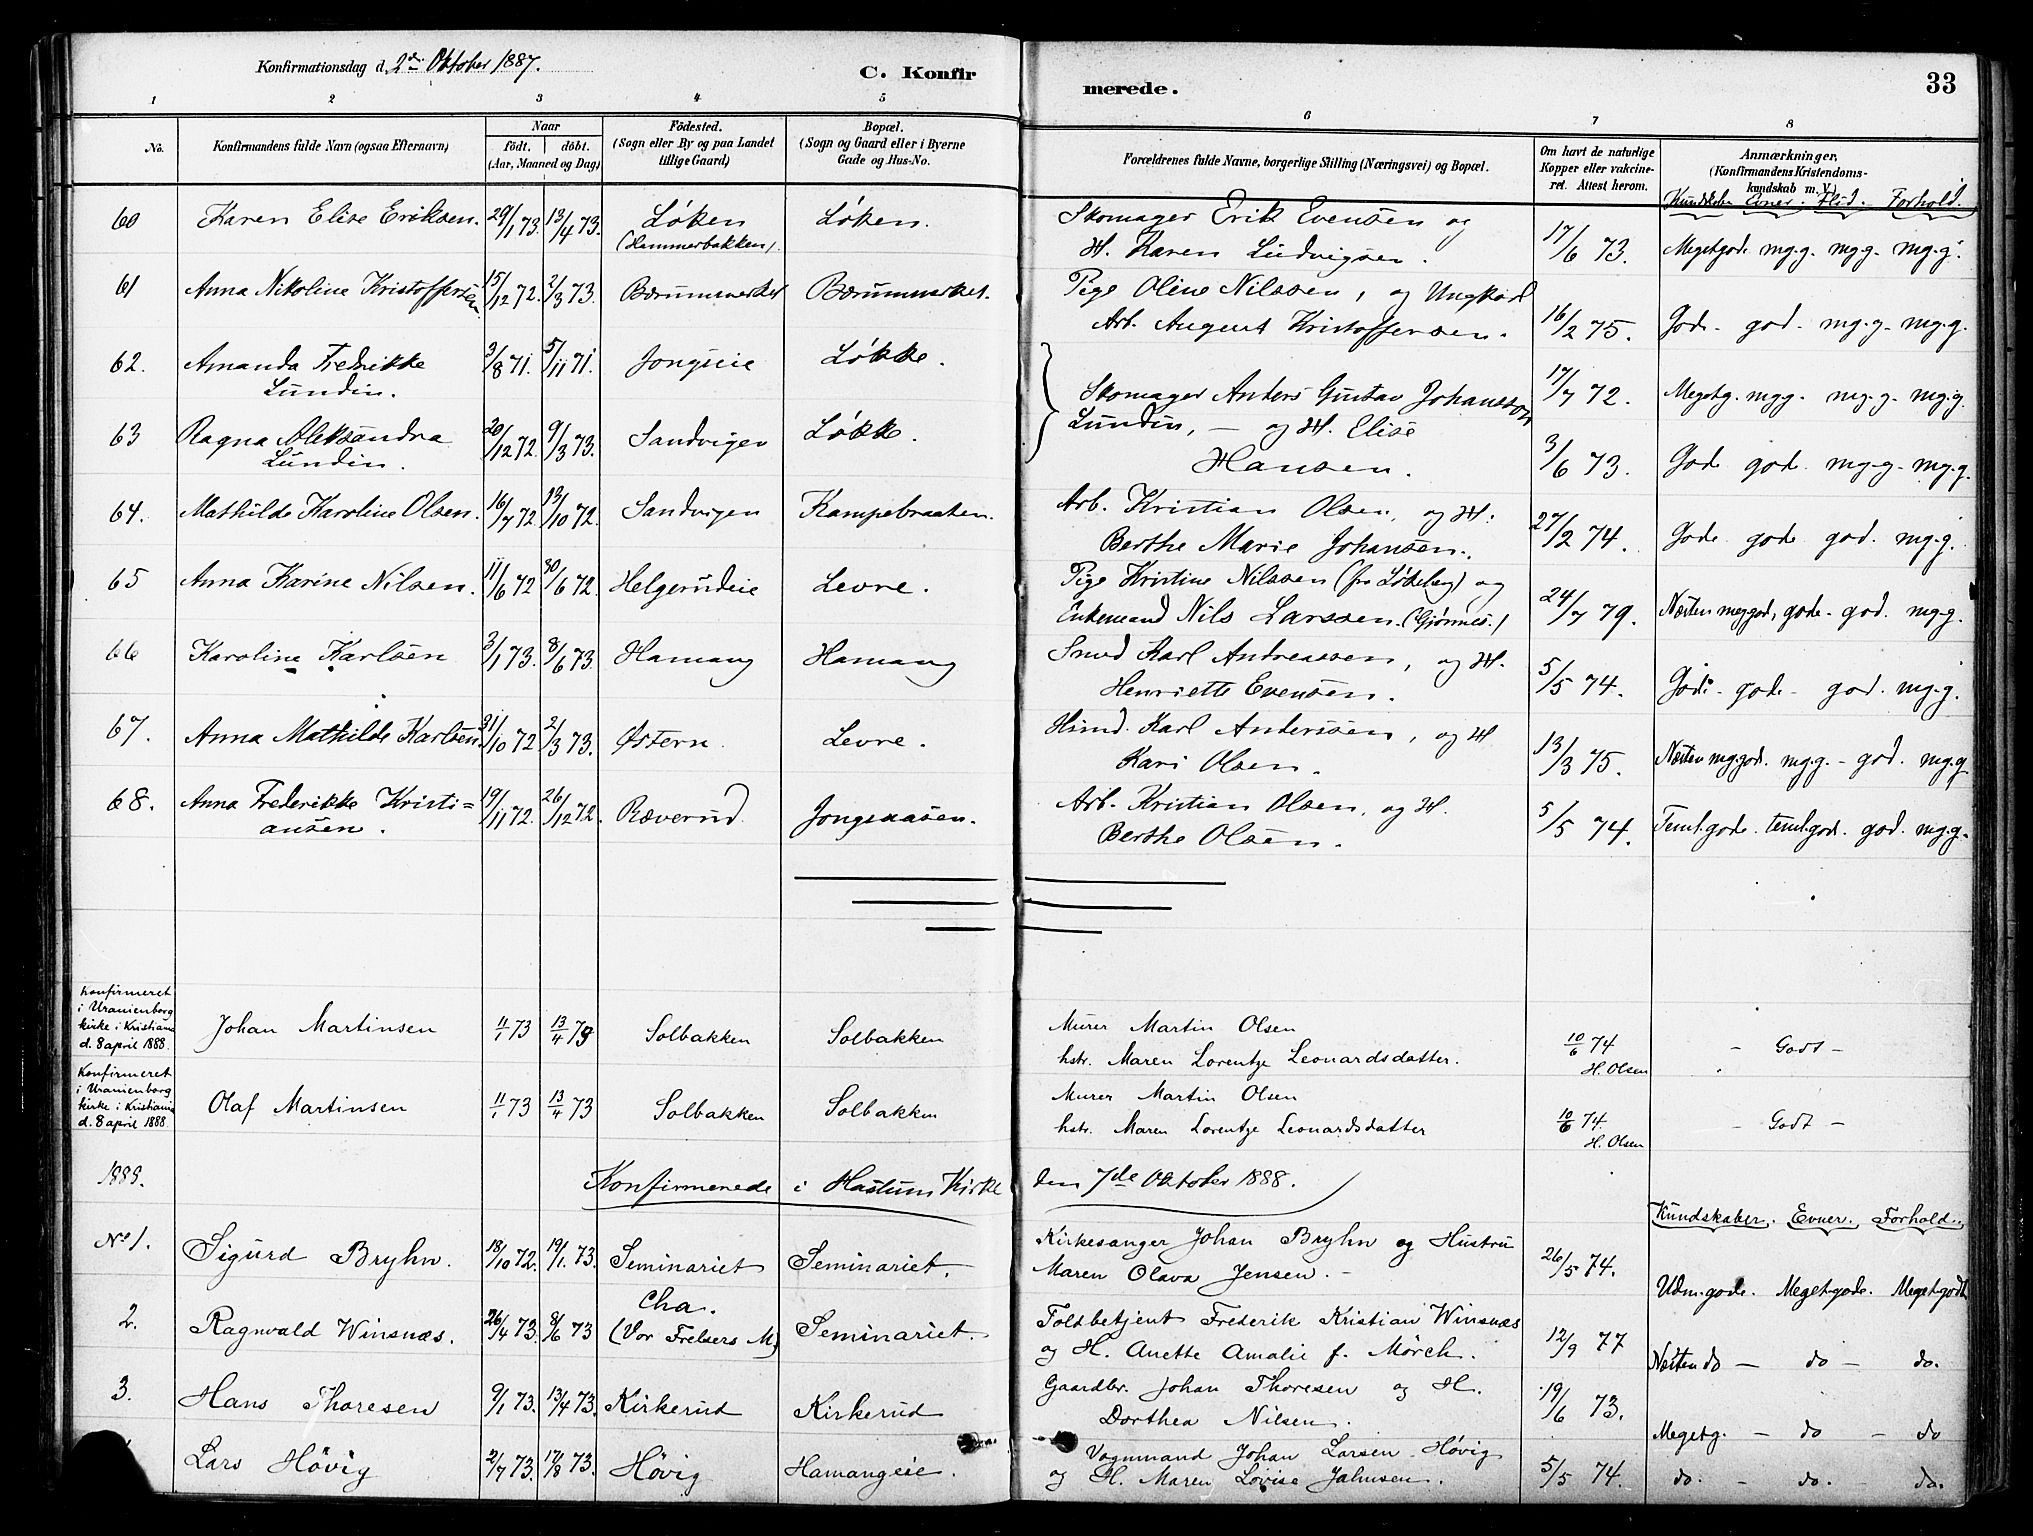 Konfirmationsdag d. 2den Oktober 1887.
C. Konfirmerede.
33
1 2 3 4 5 6 7 8
No.
Konfirmandens fulde Navn (ogsaa Efternavn)
Naar
födt. döbt.
(Aar, Maaned og Dag)
Födested.
(Sogn eller By og paa Landet
tillige Gaard)
Bopæl.
(Sogn og Gaard eller i Byerne
Gade og Hus-No.
Forældrenes fulde Navne, borgerlige Stilling (Næringsvei) og Bopæl.
Om havt de naturlige
Kopper eller vakcine-
ret. Attest herom.
Anmærkninger,
(Konfirmandens Kristendoms-
kundskab m. V.)
Kundskab. Evner. Flid. Forhold.
60 Karen Elise Eriksen. 29/1 73. 13/4 73. Løken Løken. Skomager Erik Evensen og
(Hammerbakken). H. Karen Ludvigsen. 17/6 73. Megetgode mg.g. mg.g. mg.g.
61 Anna Nikoline Kristoffersen 15/12 72. 2/3 73. Bærumsverket Bærumsverket. Pige Oline Nilssen, og Ungkarl
Arb. August Kristoffersen. 16/2 75. Gode. god. mg.g. mg.g.
62. Amanda Fredrikke 3/8 71. 5/11 71. Jongseie Løkke.
Lundin. Skomager Anders Gustav Johansson 17/7 72. Megetg. mgg. mg.g. mg.g.
63 Ragna Aleksandra 20/12 72. 9/3 73. Sandvigen Løkke. Lundin, — og H. Elise
Lundin. Hansen. 3/6 73. Gode god. mg.g. mg.g.
64. Mathilde Karoline Olsen. 16/7 72. 13/10 72. Sandvigen Kampebraaten. Arb. Kristian Olsen, og H.
Berthe Marie Johansen. 27/2 74. Gode gode god. mg.g.
65 Anna Karine Nilsen. 11/6 72 30/6 72. Helgerudeie Levre. Pige Kristine Nilssen (fra Løkeberg) og
Enkemand Nils Larssen. (Gjønnes.) 24/7 79. Næsten meg.god, gode. god. mg.g.
66 Karoline Karlsen 3/1 73. 8/6 73. Hamang Hamang Smed Karl Andreassen, og H.
Henriette Evensen. 5/5 74. Gode. gode. god. mg.g.
67. Anna Mathilde Karlsen. 31/10 72 2/3 73. Østern. Levre. Husmd. Karl Anderssen, og H
Kari Olsen. 13/3 75. Næsten mg.god. mg.g. - god. mg.g
68. Anna Frederikke Kristi= 19/11 72. 26/12 72. Ræverud Jongsaasen. Arb. Kristian Olsen, og H.
ansen. Berthe Olsen. 5/5 74. Teml.gode. teml.god. god. mg.g.
Konfirmeret
i Uranienborg
kirke i Kristiania
d. 8 april 1888.
Johan Martinsen 11/1 73 13/4 73 Solbakken Solbakken Murer Martin Olsen
hstr. Maren Lorentze Leonardsdatter. 10/6 74 - Godt -
H. Olsen
Konfirmeret
i Uranienborg
kirke i Kristiania
d. 8 april 1888.
Olaf Martinsen 11/1 73 13/4 73 Solbakken Solbakken Murer Martin Olsen
hstr. Maren Lorentze Leonardsdatter 10/6 74. - Godt -
H. Olsen
1888. Konfirmerede i Haslum Kirke den 7de Oktober 1888.
Kundskaber. Evner. Forhold.
No 1. Sigurd Bryhn. 18/10 72. 19/1 73. Seminariet Seminariet. Kirkesanger Johan Bryhn og Hustru
Maren Olava Jensen. - 26/5 74. Udm.gode. Meget gode. Meget godt
2. Ragnvald Winsnæs. 26/4 73. 8/6 73 Cha. Seminariet. Toldbetjent Frederik Kristian Winsnæs
(Vor Frelsers M) og H. Anette Amalie f. Mörch. 12/9 77 Næsten do - do - do.
3. Hans Thoresen 9/1 73. 13/4 73. Kirkerud Kirkerud Gaardbr. Johan Thoresen og H.
Dorthea Nilsen. 19/6 73. Megetg. - do - do
Lars Hövig 2/7 73. 17/8 73. Hövig Hamangeie. Vognmand Johan Larsen Hövig
og H. Maren Lovise Jahnsen. 5/5 74. do. - do. do.